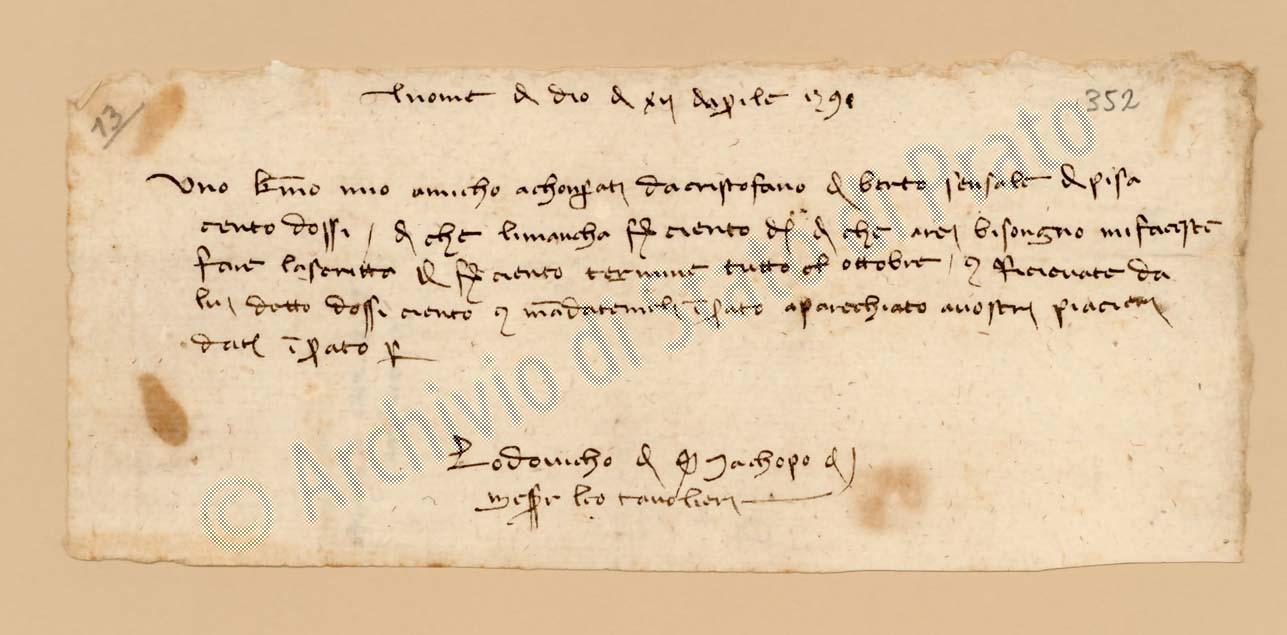 13
352
Inome di dio di xii daprile 139
Uno k͞mo mio amicho a chonprati da cristofano di berto sensale di pisa
cento dossi / di che li mancha f. ciento di che arei bisongno mi faciste
fare la scritta di f. ciento termine tutto ottobre / e ricevate da
lui detto dossi ciento e mādatemeli ī prato aparechiato a vostri piacieri
dati ī prato per
Lodovicho di ser Jachopo di
messer leo cavolieri
© Archivio di Stato di Prato